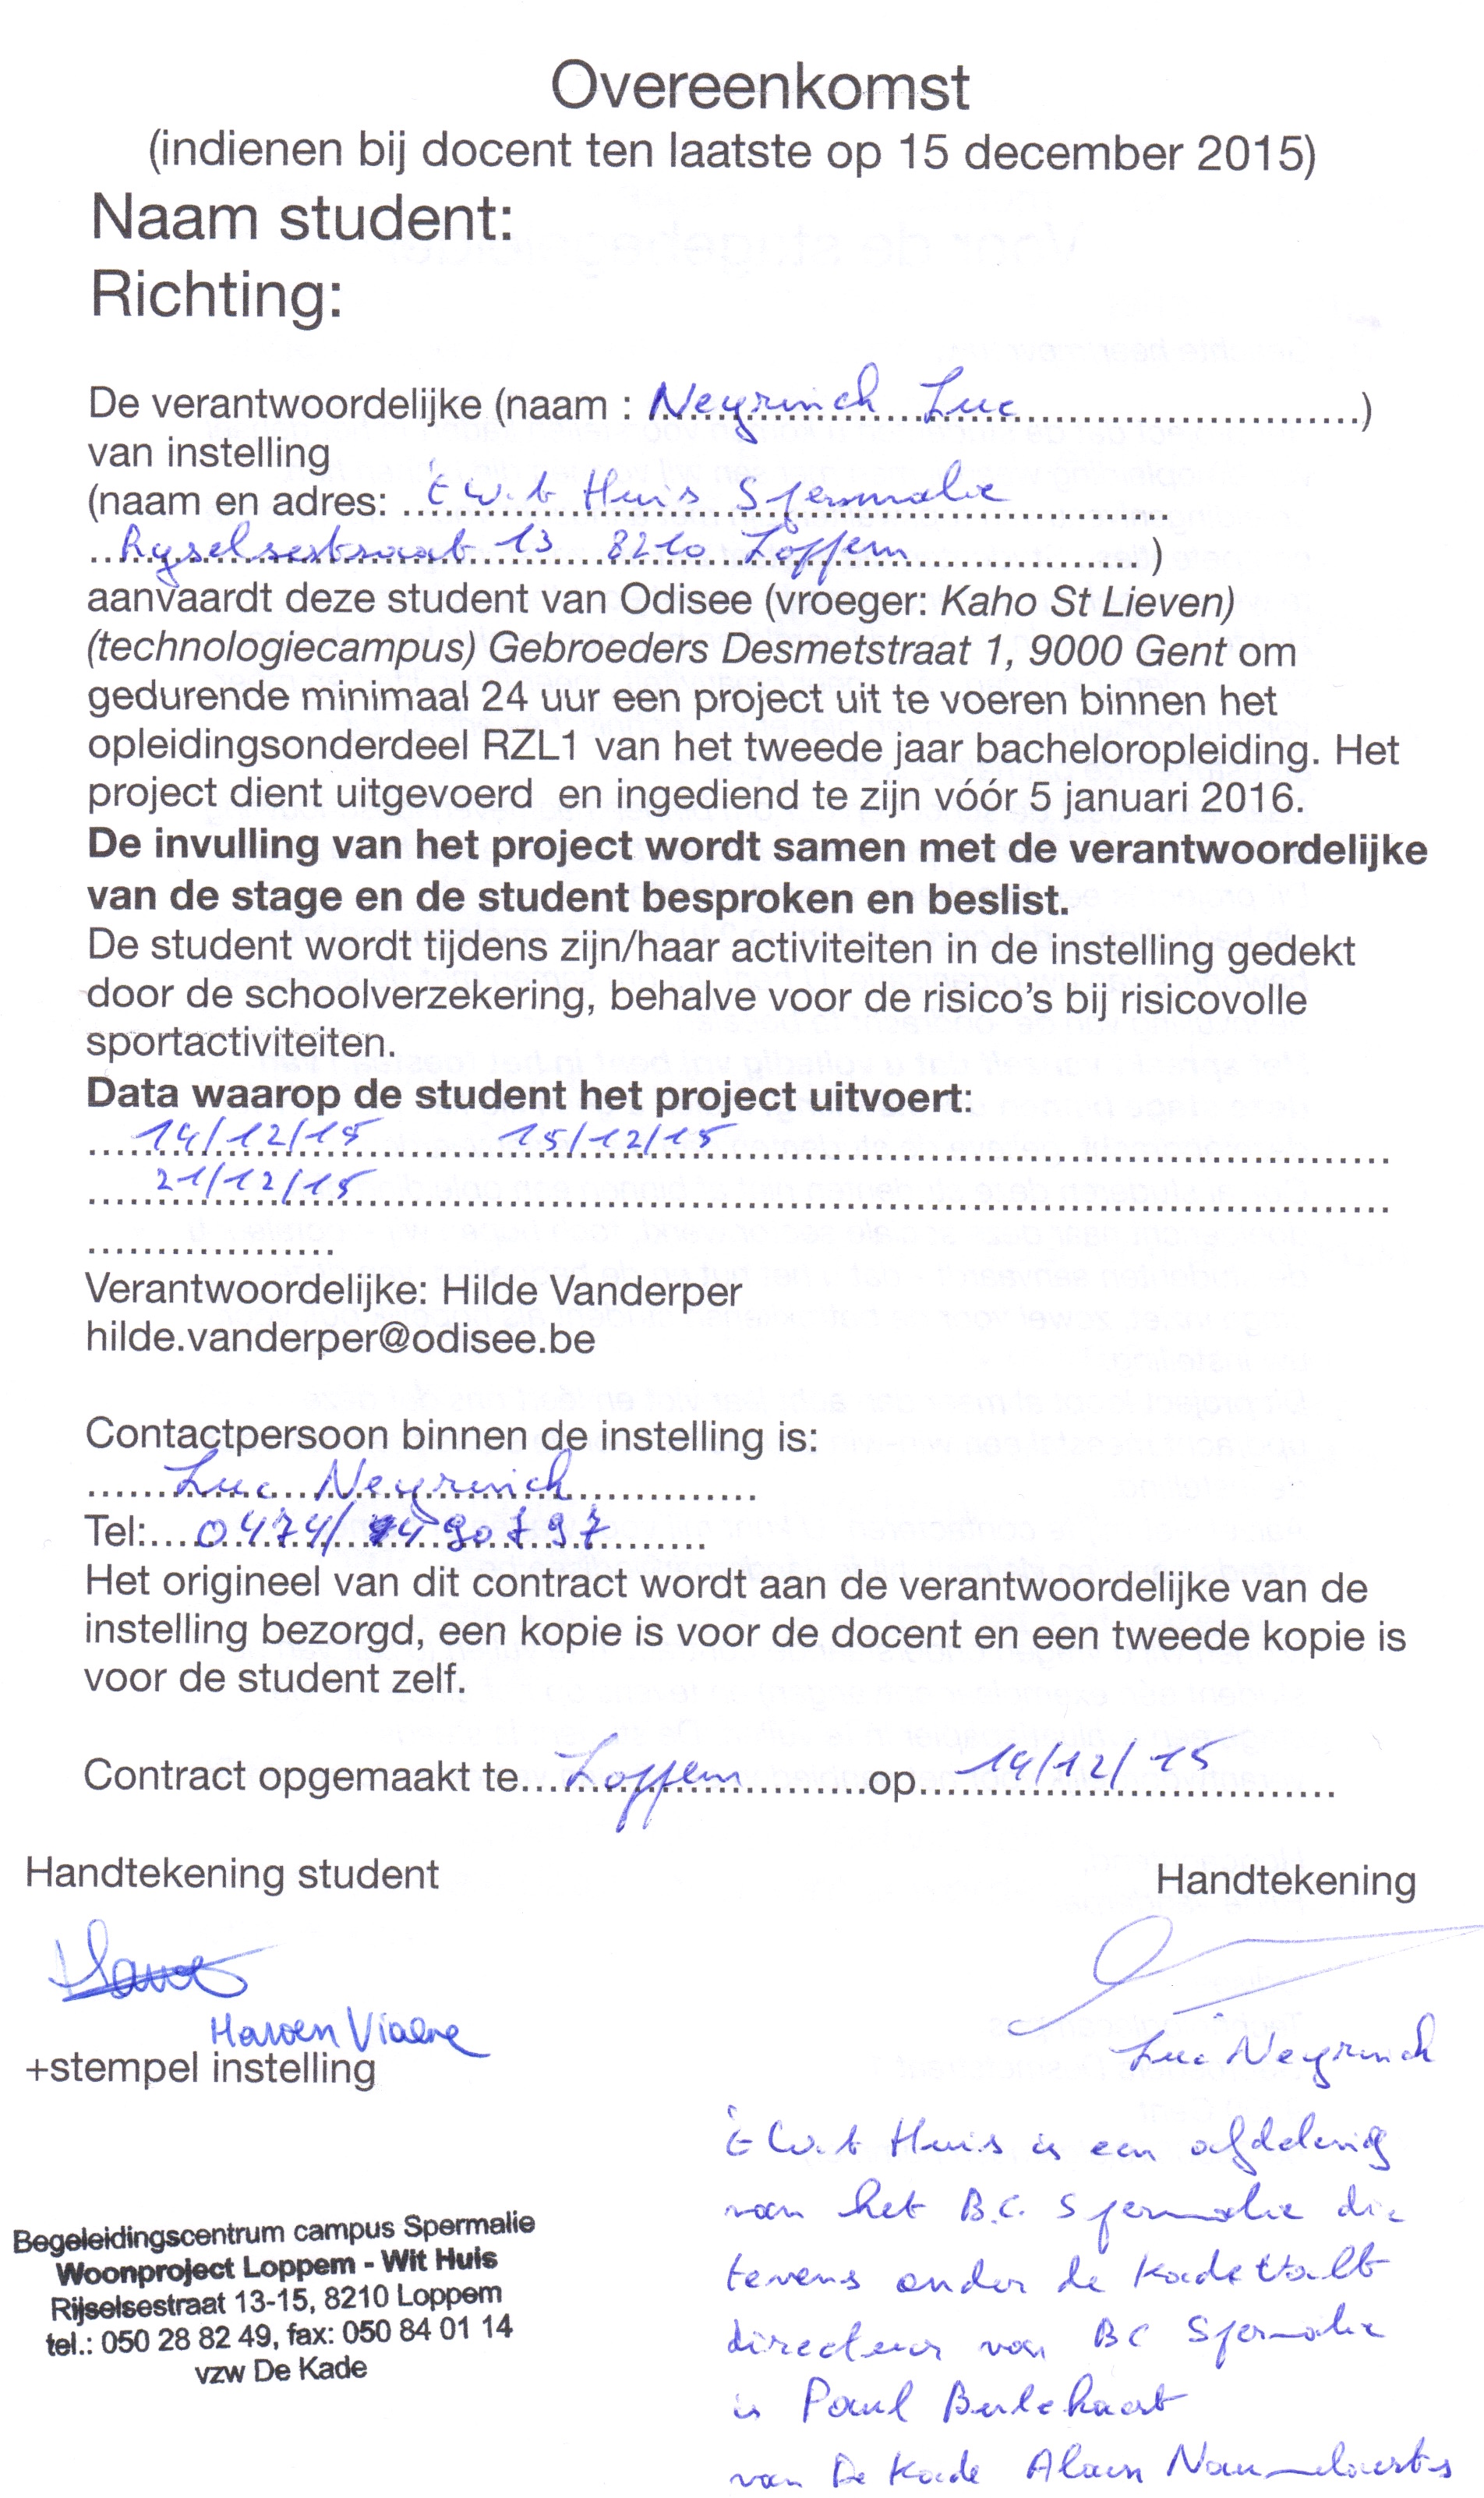 Overeenkomst
(indienen bij docent ten laatste op 15 december 2015)
Naam student:
Richting:
De verantwoordelijke (naam : Neyrinck Luc)
van instelling
(naam en adres: 't Wit Huis Spermalie
Ryselsestraat 13 8210 Loppem)
aanvaardt deze student van Odisee (vroeger: Kaho St Lieven)
(technologiecampus) Gebroeders Desmetstraat 1, 9000 Gent om
gedurende minimaal 24 uur een project uit te voeren binnen het
opleidingsonderdeel RZL1 van het tweede jaar bacheloropleiding. Het
project dient uitgevoerd en ingediend te zijn vóór 5 januari 2016.
De invulling van het project wordt samen met de verantwoordelijke
van de stage en de student besproken en beslist.
De student wordt tijdens zijn/haar activiteiten in de instelling gedekt
door de schoolverzekering, behalve voor de risico's bij risicovolle
sportactiviteiten.
Data waarop de student het project uitvoert:
14/12/15 15/12/15
21/12/15
Verantwoordelijke: Hilde Vanderper
hilde.vanderper@odisee.be
Contactpersoon binnen de instelling is:
Luc Neyrinck
Tel: 0474/490797
Het origineel van dit contract wordt aan de verantwoordelijke van de
instelling bezorgd, een kopie is voor de docent en een tweede kopie is
voor de student zelf.
Contract opgemaakt te Loppem op 14/12/15
Handtekening student Handtekening
Viaene
+stempel instelling
Luc Neyrinck
't Wit Huis is een afdeling
van het B.C. Spermalie die
tevens onder de Kade valt
directeur van BC Spermalie
is Paul
van De Kade Alain
Begeleidingscentrum campus Spermalie
Woonproject Loppem - Wit Huis
Rijselsestraat 13-15, 8210 Loppem
tel.: 050 28 82 49, fax: 050 84 01 14
vzw De Kade